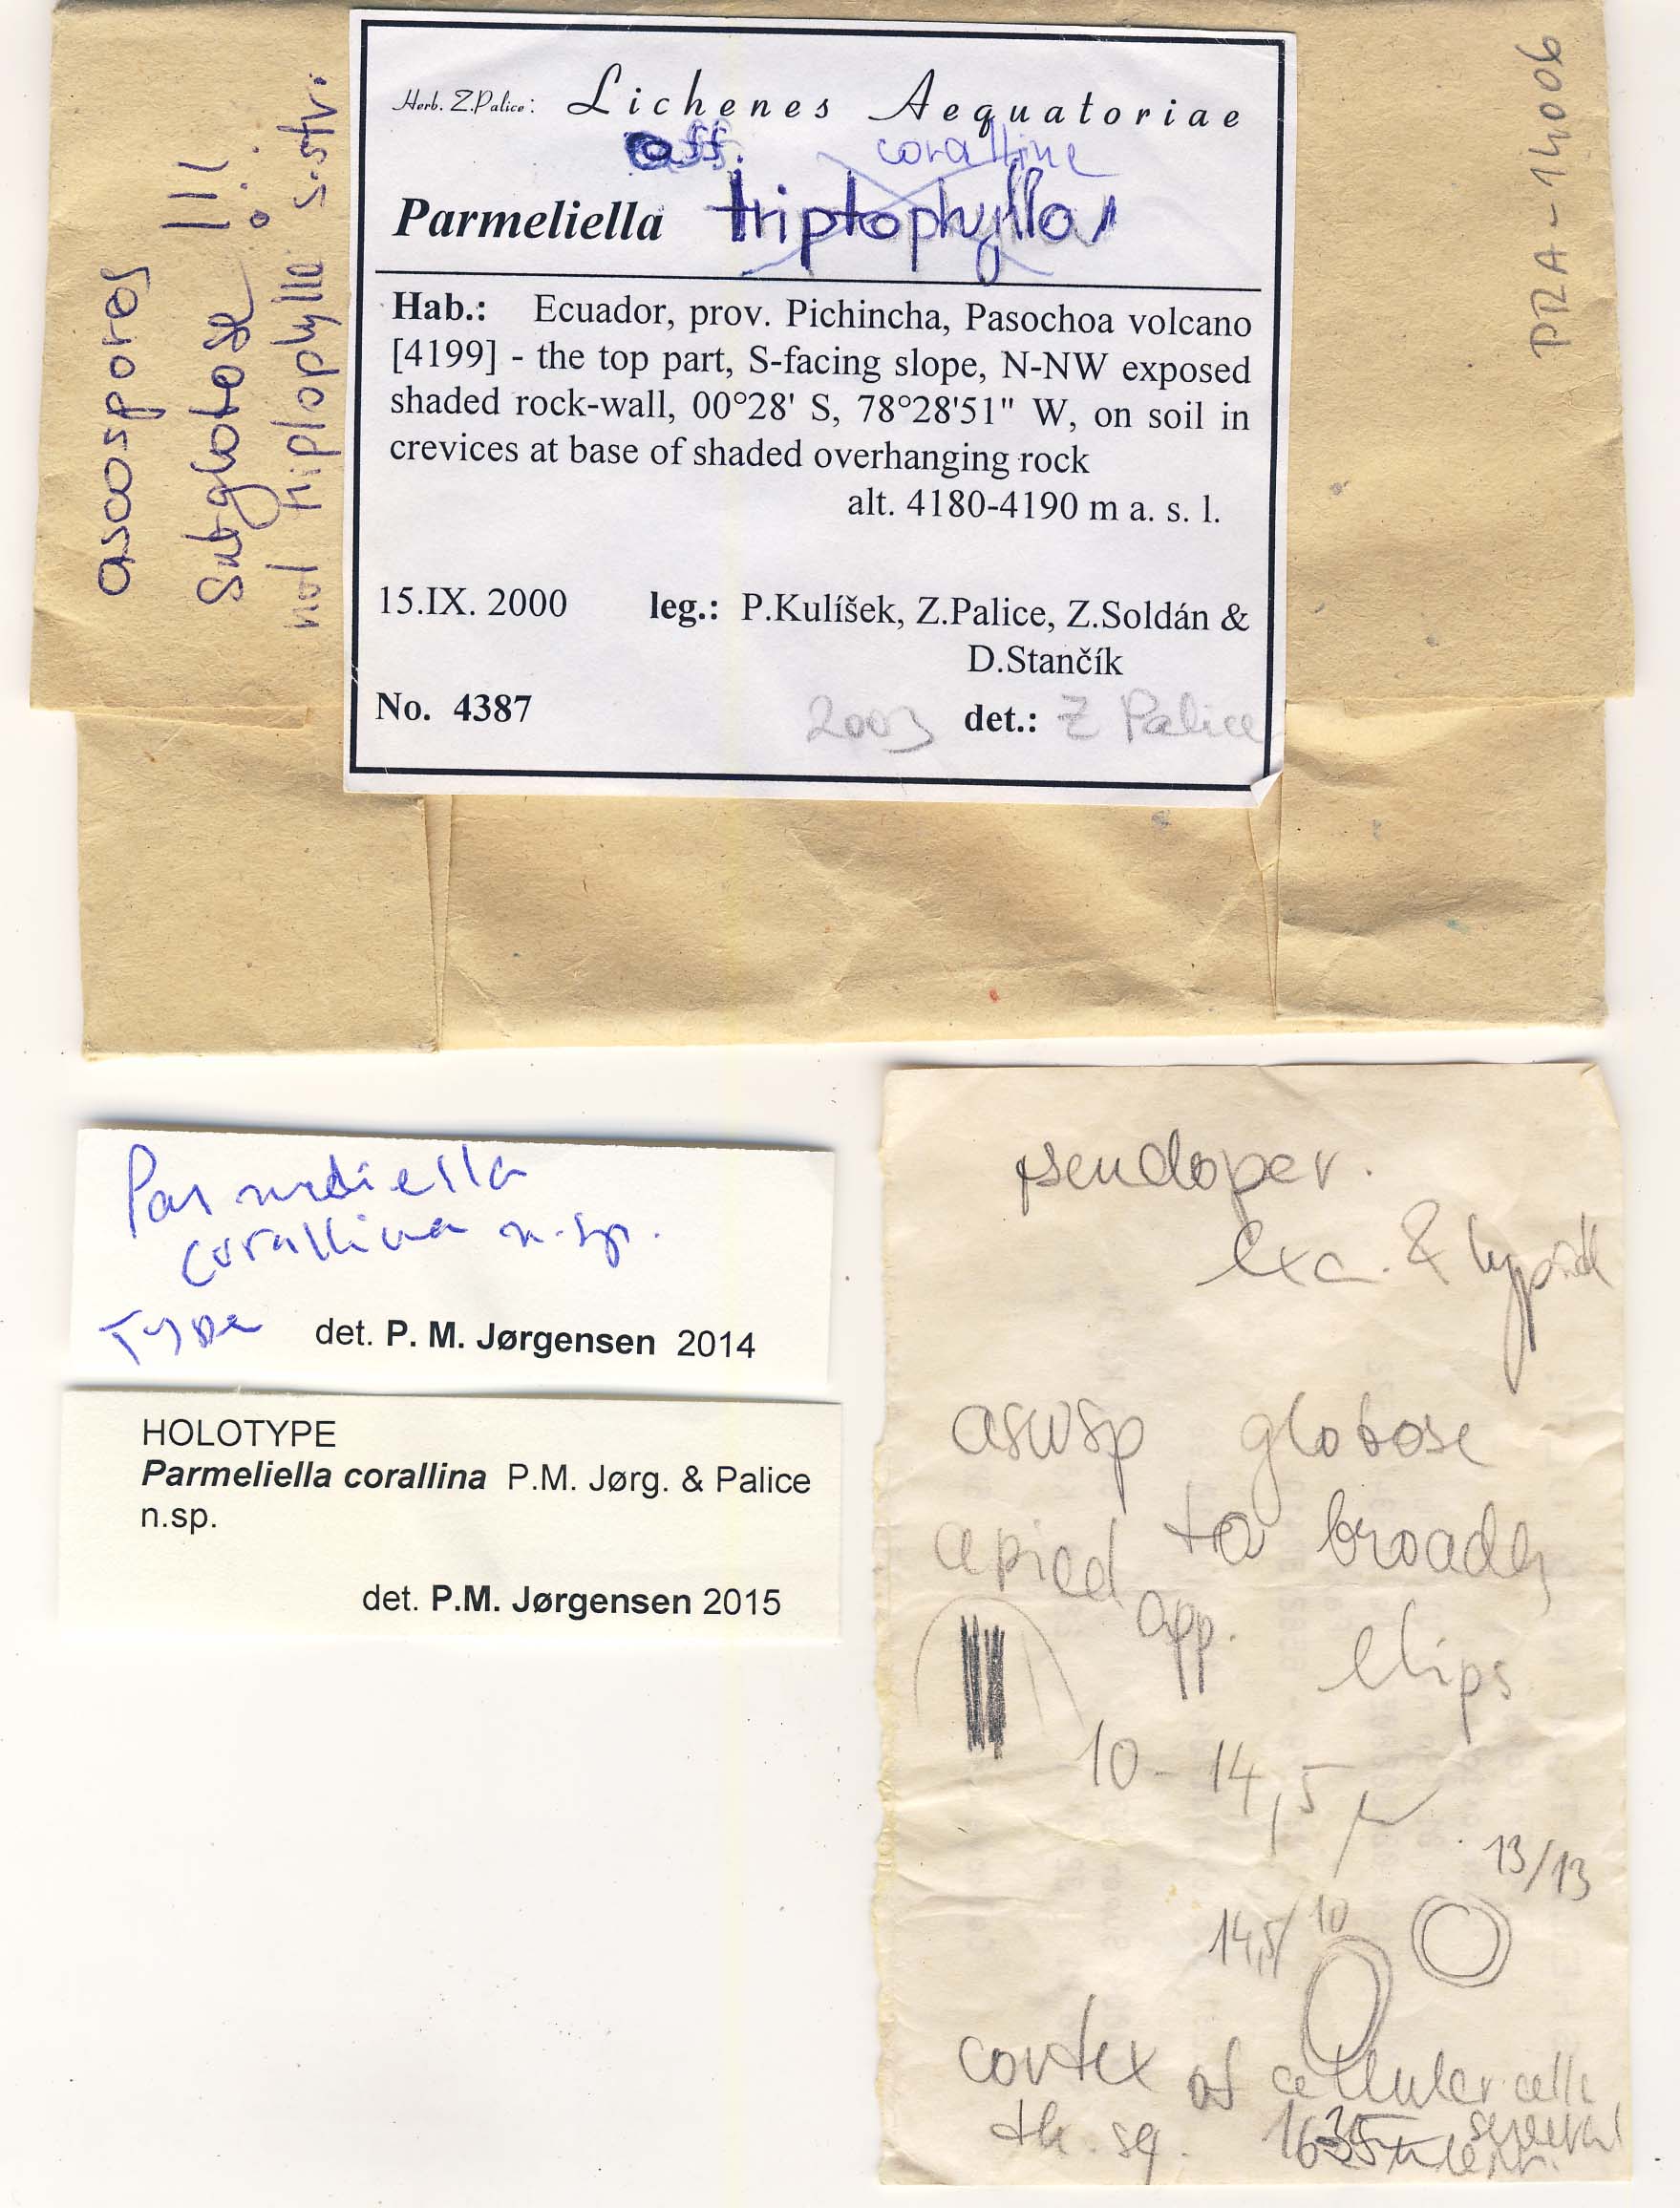 ascospores
subglobose !!!
not triptophylla s.str.
PRA-14006
Herb. Z.Palice: Lichenes Aequatoriae
aff. coralline
Parmeliella triptophylla
Hab.: Ecuador, prov. Pichincha, Pasochoa volcano
[4199] - the top part, S-facing slope, N-NW exposed
shaded rock-wall, 00°28' S, 78°28'51" W, on soil in
crevices at base of shaded overhanging rock
alt. 4180-4190 m a. s. l.
15.IX. 2000 leg.: P.Kulíšek, Z.Palice, Z.Soldán &
D.Stančík
No. 4387 2003 det.: Z Palice
Parmeliella
corallina n.sp.
Type det. P. M. Jørgensen 2014
HOLOTYPE
Parmeliella corallina P.M. Jørg. & Palice
n.sp.
det. P.M. Jørgensen 2015
pseudoper.
exc. &
ascosp globose
apical to broadly
app. elips
10-14,5 µ
13/13
14,5/10
cortex of cellular cells
th. sq.